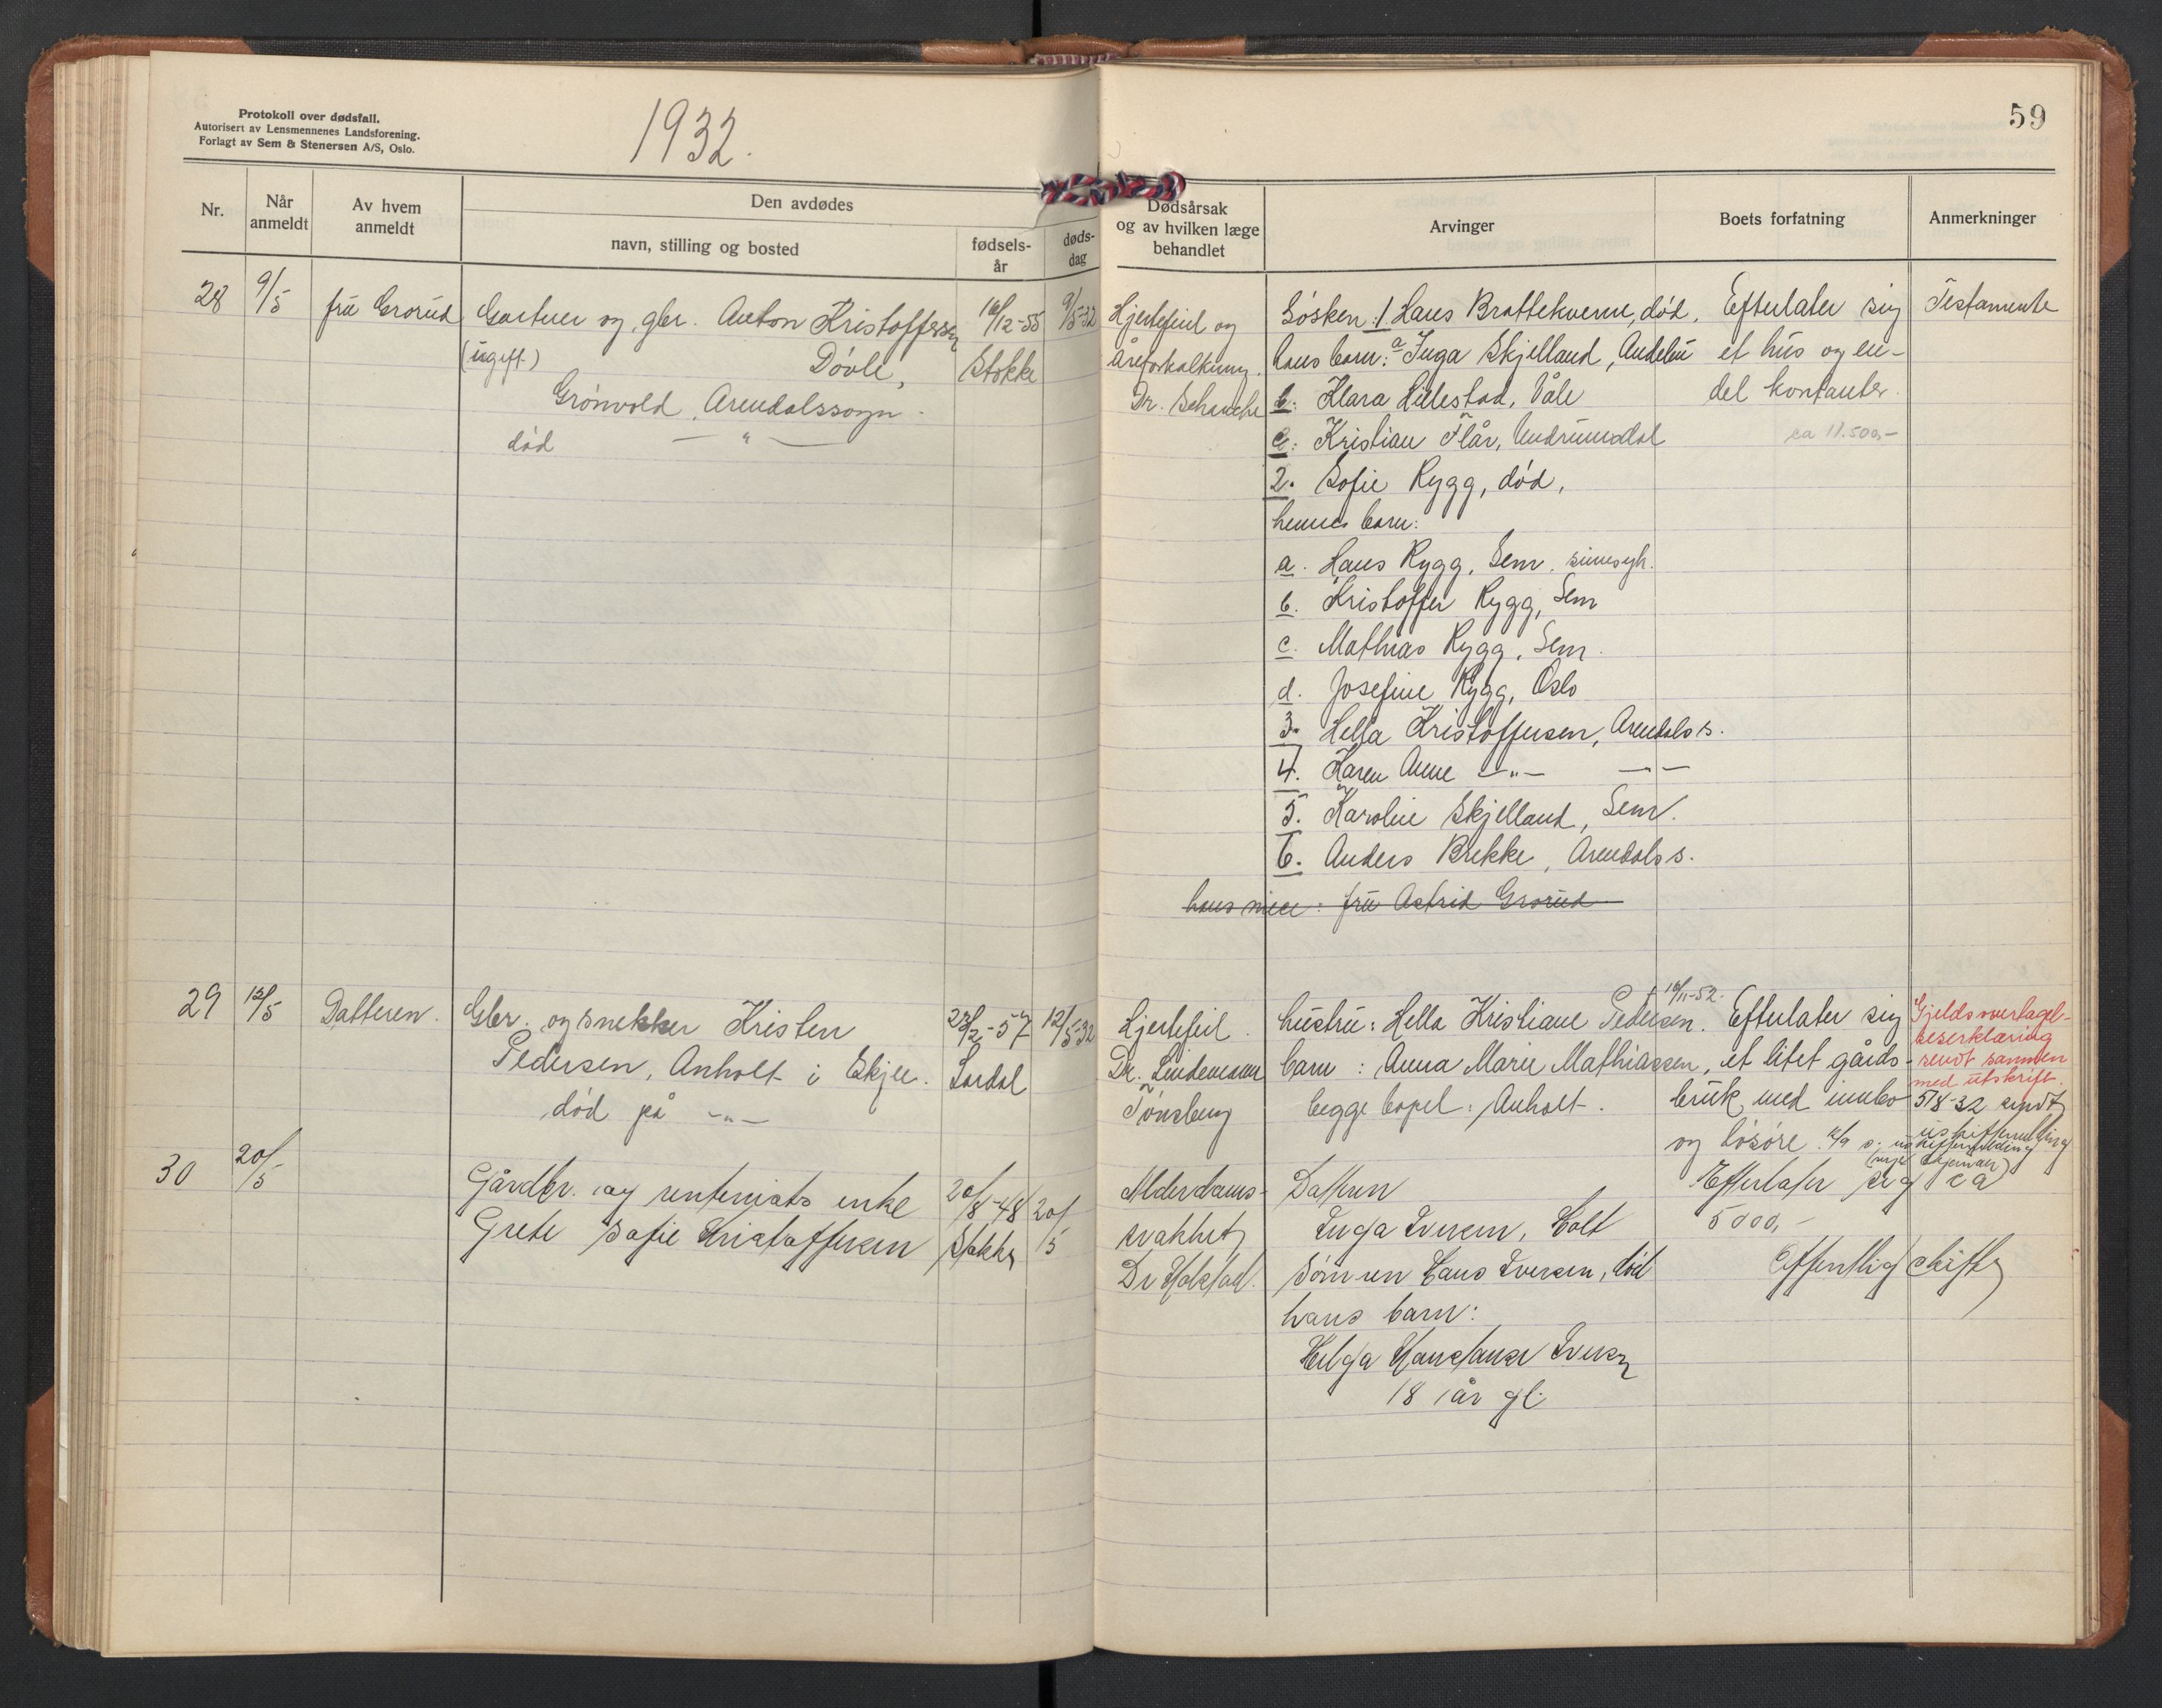 Protokoll over dødsfall.
Autorisert av Lensmennenes Landsforening.
Forlagt av Sem & Stenersen A/S, Oslo.
1932.
59
Nr.
Når anmeldt
Av hvem anmeldt
Den avdødes
navn, stilling og bosted
fødsels-
år
døds-
dag
Dødsårsak
og av hvilken læge
behandlet
Arvinger
Boets forfatning
Anmerkninger
28
9/5
fru Grorud
Gartner og gbr. Anton Kristoffersen
(ugift.) Døvle,
Grønvold, Arendalssogn.
død — " —
16/12-55
Stokke
9/5-32
Hjertefeil og
åreforkalkning.
Dr. Schanche
Søsken: 1 Hans Brattekverne, død.
hans barn: a Inga Skjelland, Andebu
b: Klara Lillestad, Våle
c: Kristian Flår, Undrumsdal
2. Sofie Rygg, død,
hennes barn:
a. Hans Rygg, Sem, sinnsyk.
b. Kristoffer Rygg, Sem
c. Mathias Rygg, Sem.
d. Josefine Rygg, Oslo
3. Hella Kristoffersen, Arendals s.
4. Karen Anne — " — — " —
5. Karoline Skjelland, Sem.
6. Anders Brekke, Arendals s.
hans niece: fru Astrid Grorud
Efterlater sig
et hus og en-
del kontanter.
ca 11.500,-
Testamente
29
12/5
Datteren.
Gbr. og snekker Kristen
Pedersen, Anholt i Skjee.
død på — " —
23/2-57
Lardal
12/5-32
Hjertefeil.
Dr. Lindemann
Tønsberg
+ 16/11-52.
hustru: Hella Kristiane Pedersen.
barn: Anna Marie Mathiassen,
begge bopel: Anholt.
Efterlater sig
et litet gårds-
bruk med innbo
og løsøre.
Gjeldsovertagel-
seserklæring
sendt sammen
med utskrift.
5/8-32 sendt
30
20/5
Gårdbr. og rentenists enke
Grete Sofie Kristoffersen
20/8-48
Stokke
20/5
Alderdoms-
svakhet
Dr Holstad.
Datteren
Inga Iversen, Holt
Sønnen Hans Iversen, død
hans barn:
Helga Konstanse Iversen
18 år gl.
Efterlater sig ca
5000,-
Offentlig skifte